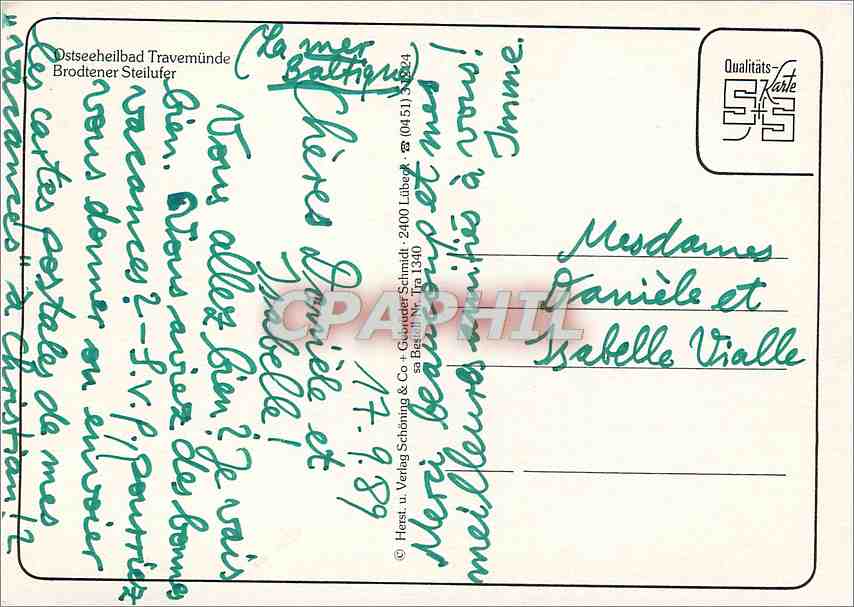 Ostseeheilbad Travemünde
Brodtener Steilufer
(La mer
Baltique)
17.9.89
Chères Danièle et
Isabelle!
Vous allez bien? Je vais
bien. Vous aviez des bonnes
vacances? - S.V.P., pourriez
vous donner ou envoier
les cartes postales de mes
"vacances" à Christian!?
Merci beaucoup et mes
meilleures amitiés à vous!
Imme.
© Herst. u. Verlag Schöning & Co + Gebrüder Schmidt · 2400 Lübeck · ☎ (0451) 31224
sa Bestell Nr. Tra 1340
Qualitäts-
Karte
S+S
Mesdames
Danièle et
Isabelle Vialle
CPAPHIL